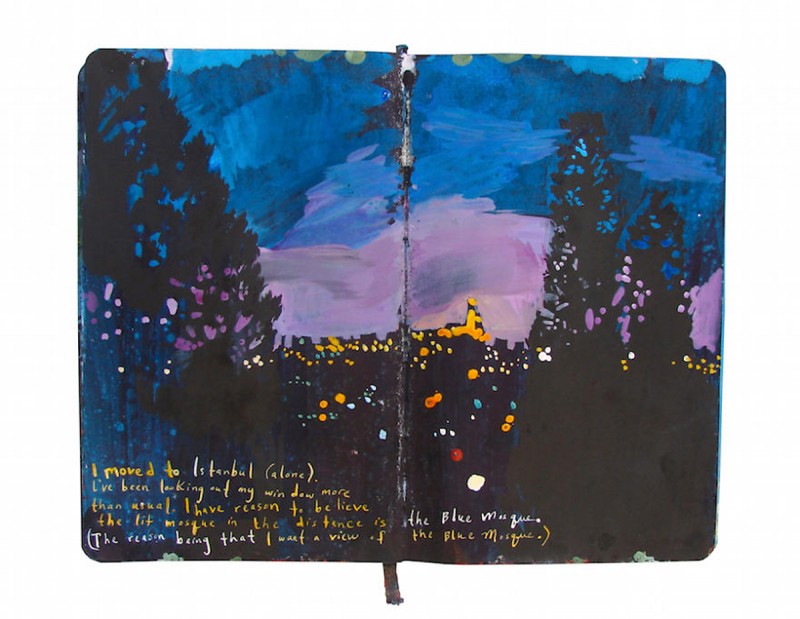 I moved to Istanbul (alone).
I've been looking out my window more
than usual. I have reason to believe
the lit mosque in the distence is the Blue Mosque.
(The reason being that I want a view of the Blue Mosque.)